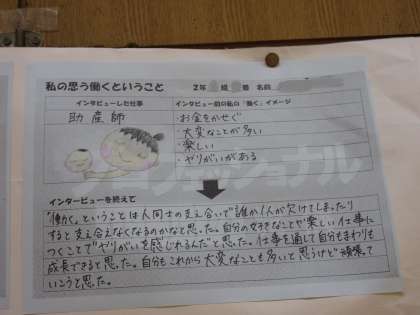 私の思う働くということ 2年 組 番 名前
インタビューした仕事
助産師
インタビュー前の私の「働く」イメージ
・お金をかせぐ
・大変なことが多い
・楽しい
・やりがいがある
インタビューを終えて
"働く"ということは人同士の支え合いで誰か1人が欠けてしまったり
すると支え合えなくなるのかなと思った。自分の好きなことや楽しい仕事に
つくことで"やりがいを感じれるんだ"と思った。仕事を通して自分もまわりも
成長できると思った。自分もこれから大変なことも多いと思うけど頑張って
いこうと思った。